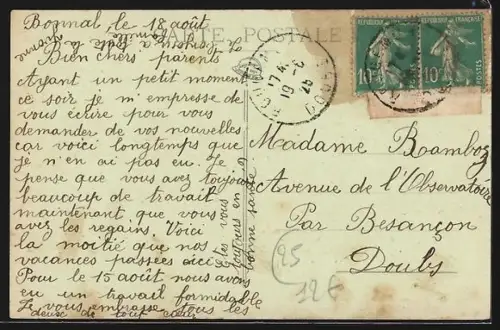 Bonnal le 18 août
CARTE POSTALE
Bien chers parents
Ayant un petit moment
ce soir je m'empresse de
vous écrire pour vous
demander de vos nouvelles
car voici longtemps que
je n'en ai pas eu. Je
pense que vous avez toujours
beaucoup de travail
maintenant que vous
avez les regains. Voici
la moitié que nos
vacances passées ici
Pour le 15 août nous avons
eu un travail formidable
Je vous embrasse tous les
deux de tout cœur
Êtes vous
toujours en
bonne santé?
17 4.
19 - 8
26
DOUBS
REPUBLIQUE FRANÇAISE
10c
POSTES
REPUBLIQUE FRANÇAISE
10c
POSTES
Madame Ramboz
Avenue de l'Observatoire
Par Besançon
Doubs
25
12€